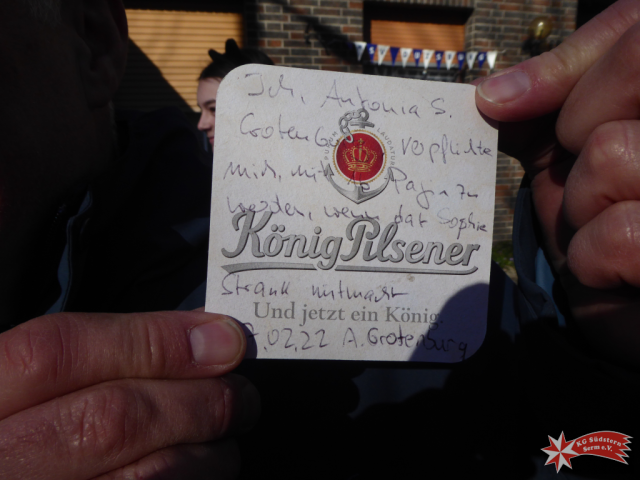 Ich, Antonia S.
Grotenburg verpflichte
mich, mit
zu
werden, wenn dat Sophie
König Pilsener
Strank mitmacht
Und jetzt ein König.
.02.22 A. Grotenburg
KG Südstern
Serm e.V.